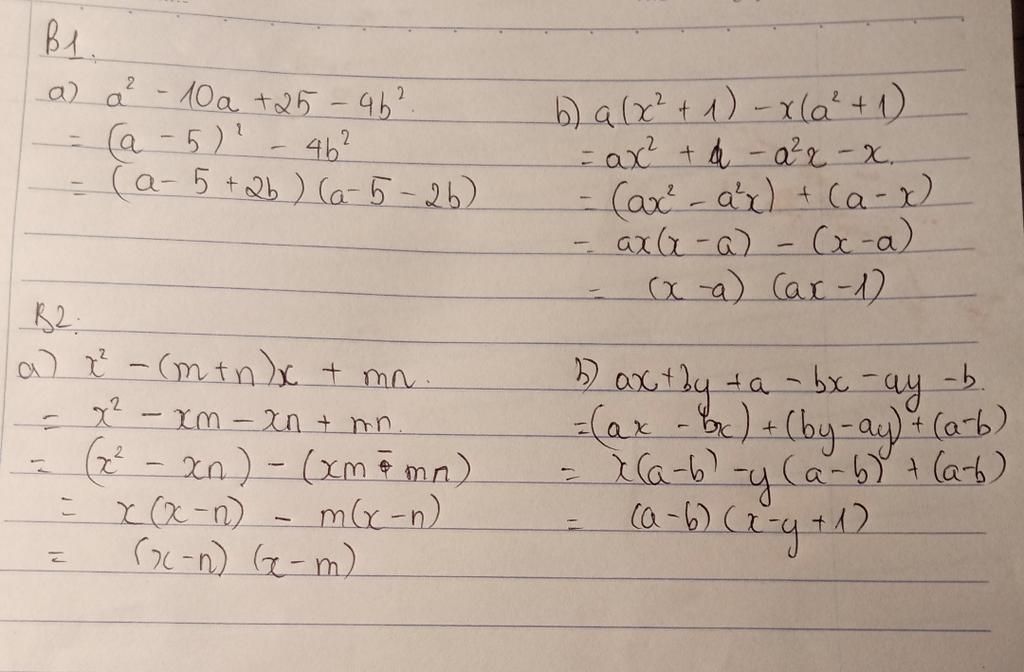 B1.
a) a² - 10a + 25 - 4b².
= (a - 5)² - 4b²
= (a - 5 + 2b) (a - 5 - 2b)
b) a(x² + 1) - x(a² + 1)
= ax² + a - a²x - x.
= (ax² - a²x) + (a - x)
= ax(x - a) - (x - a)
= (x - a) (ax - 1)
B2.
a) x² - (m + n)x + mn.
= x² - xm - xn + mn.
= (x² - xn) - (xm - mn)
= x(x - n) - m(x - n)
= (x - n) (x - m)
b) ax + by + a - bx - ay - b.
= (ax - bx) + (by - ay) + (a - b)
= x(a - b) - y(a - b) + (a - b)
= (a - b) (x - y + 1)